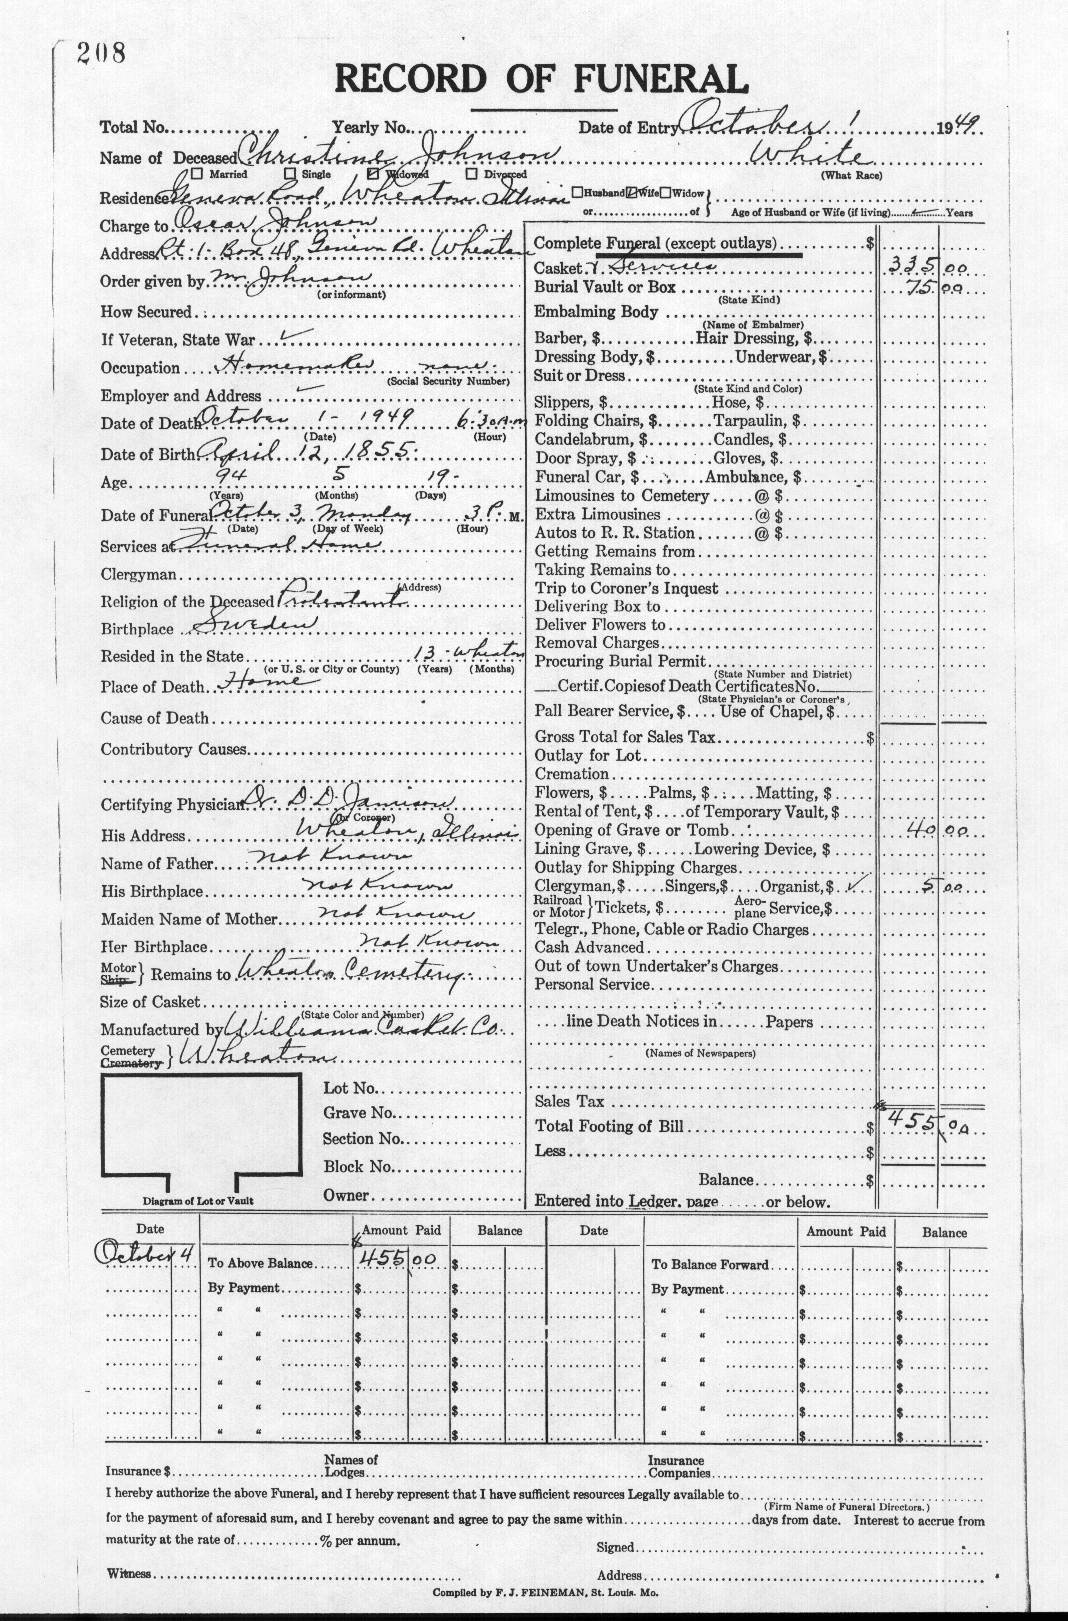 208
RECORD OF FUNERAL
Total No. Yearly No. Date of Entry October 1 1949
Name of Deceased Christine Johnson White
☐ Married ☐ Single ☑ Widowed ☐ Divorced (What Race)
Residence Geneva Road, Wheaton Illinois ☐ Husband ☑ Wife ☐ Widow
or of Age of Husband or Wife (if living) ✓ Years
Charge to Oscar Johnson
Address Rt. 1- Box 48, Geneva Rd. Wheaton
Order given by Mr Johnson
(or informant)
How Secured
If Veteran, State War ✓
Occupation Homemaker none
(Social Security Number)
Employer and Address ✓
Date of Death October 1- 1949 6:30 A.m
(Date) (Hour)
Date of Birth April 12, 1855
Age 94 5 19-
(Years) (Months) (Days)
Date of Funeral October 3, Monday 3 P. M.
(Date) (Day of Week) (Hour)
Services at Funeral Home
Clergyman
(Address)
Religion of the Deceased Protestant
Birthplace Sweden
Resided in the State 13 - Wheaton
(or U. S. or City or County) (Years) (Months)
Place of Death Home
Cause of Death
Contributory Causes
Certifying Physician Dr. D. D. Jamison
(or Coroner)
His Address Wheaton, Illinois
Name of Father not Known
His Birthplace not Known
Maiden Name of Mother not Known
Her Birthplace not Known
Motor
Ship } Remains to Wheaton Cemetery
Size of Casket
(State Color and Number)
Manufactured by Williams Casket Co.
Cemetery
Crematory } Wheaton
Lot No.
Grave No.
Section No.
Block No.
Owner
Diagram of Lot or Vault
Complete Funeral (except outlays) $
Casket & Services 335 00
Burial Vault or Box 75 00
(State Kind)
Embalming Body
(Name of Embalmer)
Barber, $ Hair Dressing, $
Dressing Body, $ Underwear, $
Suit or Dress
(State Kind and Color)
Slippers, $ Hose, $
Folding Chairs, $ Tarpaulin, $
Candelabrum, $ Candles, $
Door Spray, $ Gloves, $
Funeral Car, $ Ambulance, $
Limousines to Cemetery @ $
Extra Limousines @ $
Autos to R. R. Station @ $
Getting Remains from
Taking Remains to
Trip to Coroner's Inquest
Delivering Box to
Deliver Flowers to
Removal Charges
Procuring Burial Permit
(State Number and District)
Certif. Copies of Death Certificates No.
(State Physician's or Coroner's)
Pall Bearer Service, $ Use of Chapel, $
Gross Total for Sales Tax $
Outlay for Lot
Cremation
Flowers, $ Palms, $ Matting, $
Rental of Tent, $ of Temporary Vault, $
Opening of Grave or Tomb 40 00
Lining Grave, $ Lowering Device, $
Outlay for Shipping Charges
Clergyman, $ Singers, $ Organist, $ ✓ 5 00
Railroad
or Motor } Tickets, $ Aero-
plane Service, $
Telegr., Phone, Cable or Radio Charges
Cash Advanced
Out of town Undertaker's Charges
Personal Service
line Death Notices in Papers
(Names of Newspapers)
Sales Tax
Total Footing of Bill $ 455 00
Less $
Balance $
Entered into Ledger, page or below.
Date Amount Paid Balance Date Amount Paid Balance
October 4 To Above Balance $ 455 00 $ To Balance Forward $
By Payment $ $ By Payment $ $
" " $ $ " " $ $
" " $ $ " " $ $
" " $ $ " " $ $
" " $ $ " " $ $
" " $ $ " " $ $
" " $ $ " " $ $
Insurance $ Names of Lodges Insurance Companies
I hereby authorize the above Funeral, and I hereby represent that I have sufficient resources Legally available to
(Firm Name of Funeral Directors.)
for the payment of aforesaid sum, and I hereby covenant and agree to pay the same within days from date. Interest to accrue from
maturity at the rate of % per annum.
Signed
Witness Address
Compiled by F. J. FEINEMAN, St. Louis. Mo.